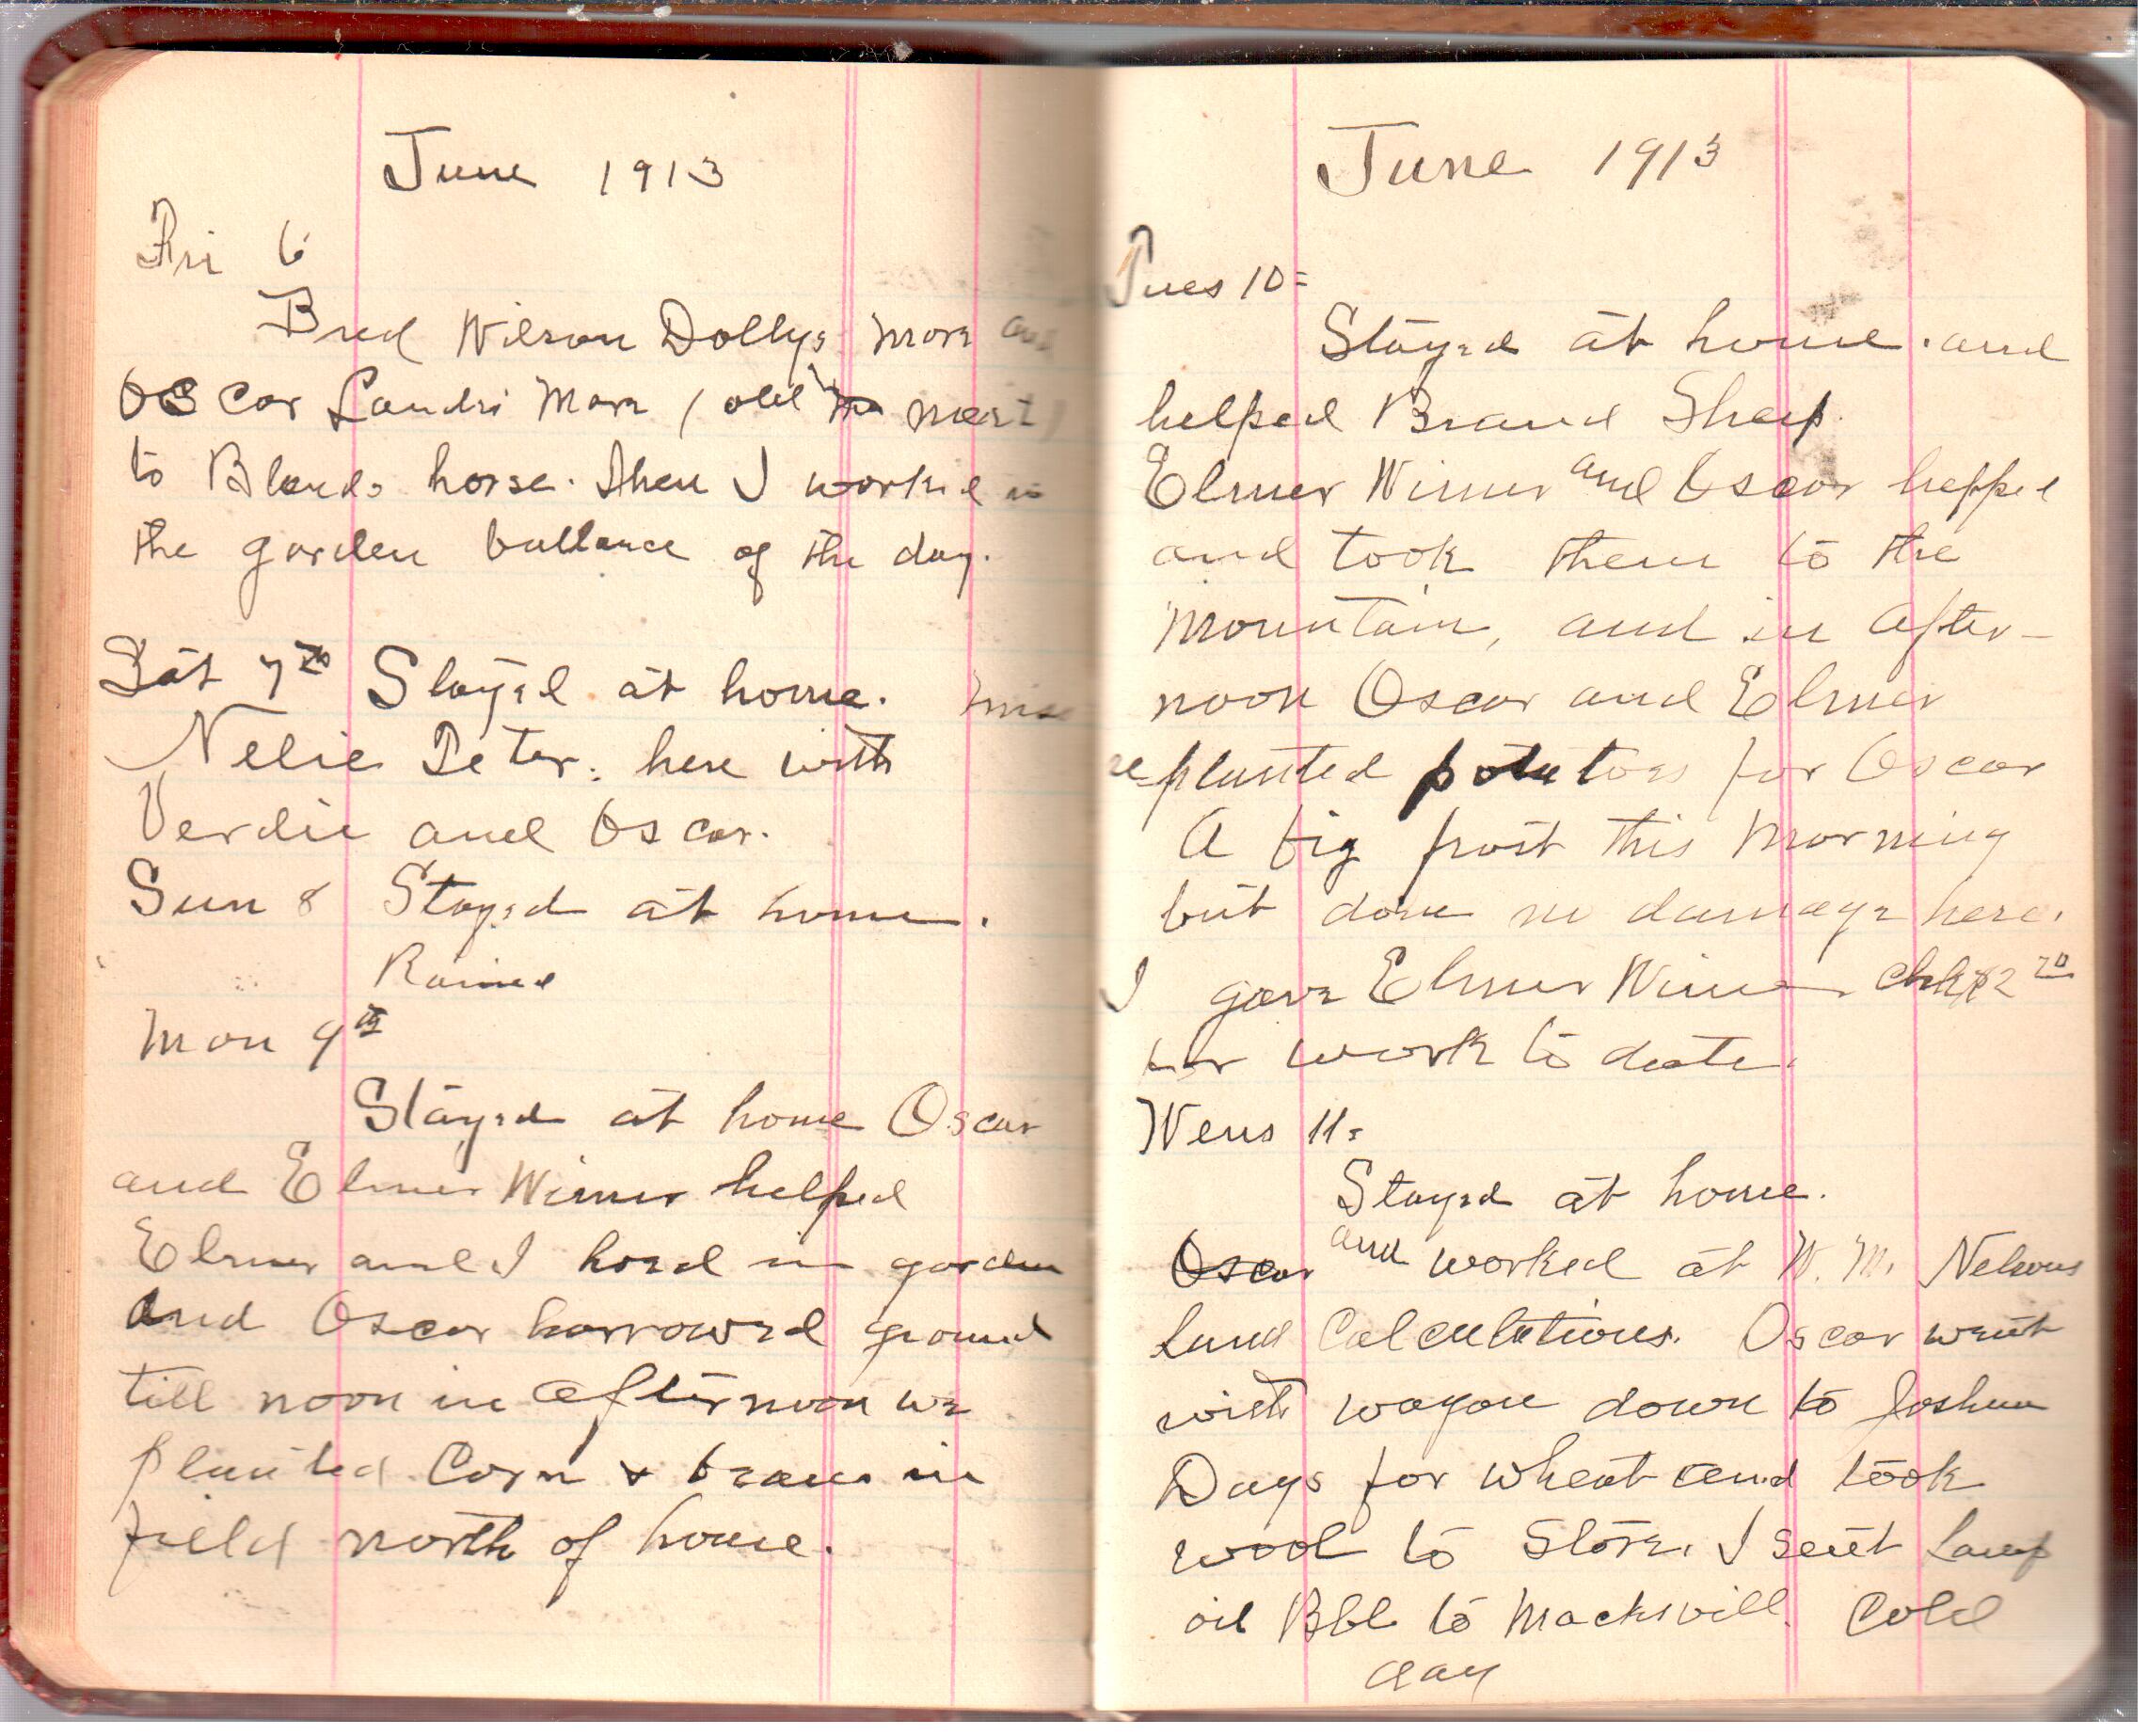 June 1913
Fri 6
Bred Wilson Dollys Mare and
Oscar Landis Mare (old neat)
to Blands horse. Then I worked in
the garden ballance of the day.
Sat 7th Stayed at home. Miss
Nelie Teter. here with
Verdie and Oscar.
Sun 8 Stayed at home.
Rained
Mon 9th
Stayed at home Oscar
and Elmer Wimer helped
Elmer and I hoed in garden
and Oscar harrowed ground
till noon in afternoon we
planted Corn & beans in
field north of house.
June 1913
Tues 10=
Stayed at home. and
helped Brand Sheep.
Elmer Wimer and Oscar helped
and took them to the
Mountain, and in after-
noon Oscar and Elmer
replanted potatoes for Oscar
A big frost this Morning
but done no damage here.
I gave Elmer Wimer chk
for work to date.
Wens 11=
Stayed at home.
Oscar and worked at W. M. Nelsons
Land Calculations. Oscar went
with wagon down to Joshua
Days for wheat and took
wool to Store. I sent Lamp
oil Bbl to Macksvill. Cold
day